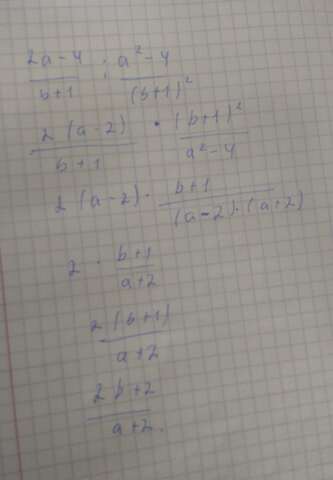 (2a-4)/(b+1) : (a²-4)/(b+1)²
2(a-2)/(b+1) · (b+1)²/(a²-4)
2(a-2) · (b+1)/((a-2)·(a+2))
2 · (b+1)/(a+2)
2(b+1)/(a+2)
(2b+2)/(a+2).